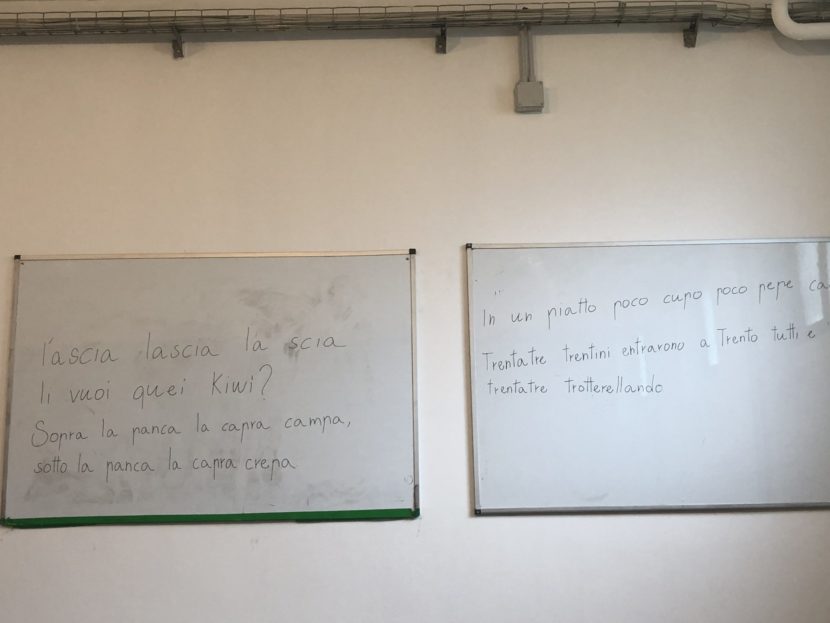 l'ascia lascia la scia
li vuoi quei Kiwi?
Sopra la panca la capra campa,
sotto la panca la capra crepa
In un piatto poco cupo poco pepe
Trentatre trentini entrarono a Trento tutti e
trentatre trotterellando